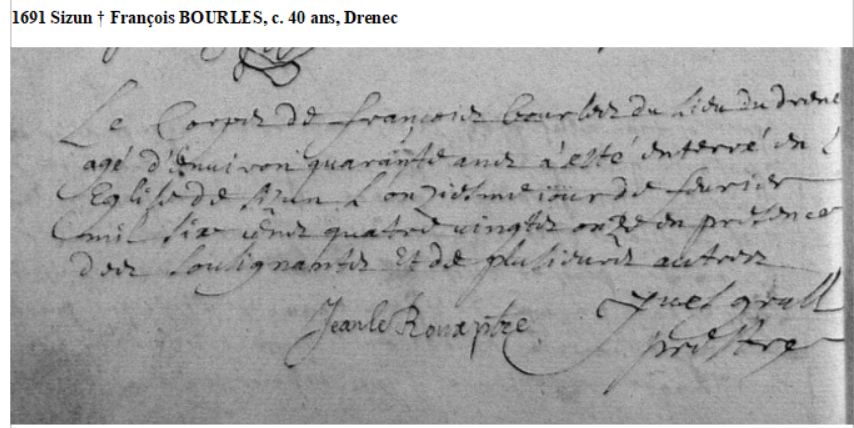 1691 Sizun † François BOURLES, c. 40 ans, Drenec
Le Corps de françois bourles du Lieu du drene
agé d'environ quarante ans à esté enterré en l
Eglise de sizun L onziesme iour de feuvrier
mil six cents quatre vingts onze en presence
des sousignants Et de plusieurs autres
Jean le Roux ptre
yves grall
prestre